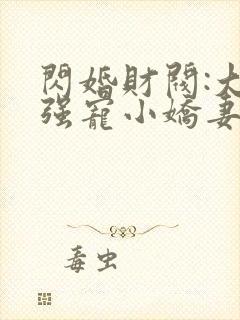 閃婚財閥:大
强寵小嬌妻
毒虫